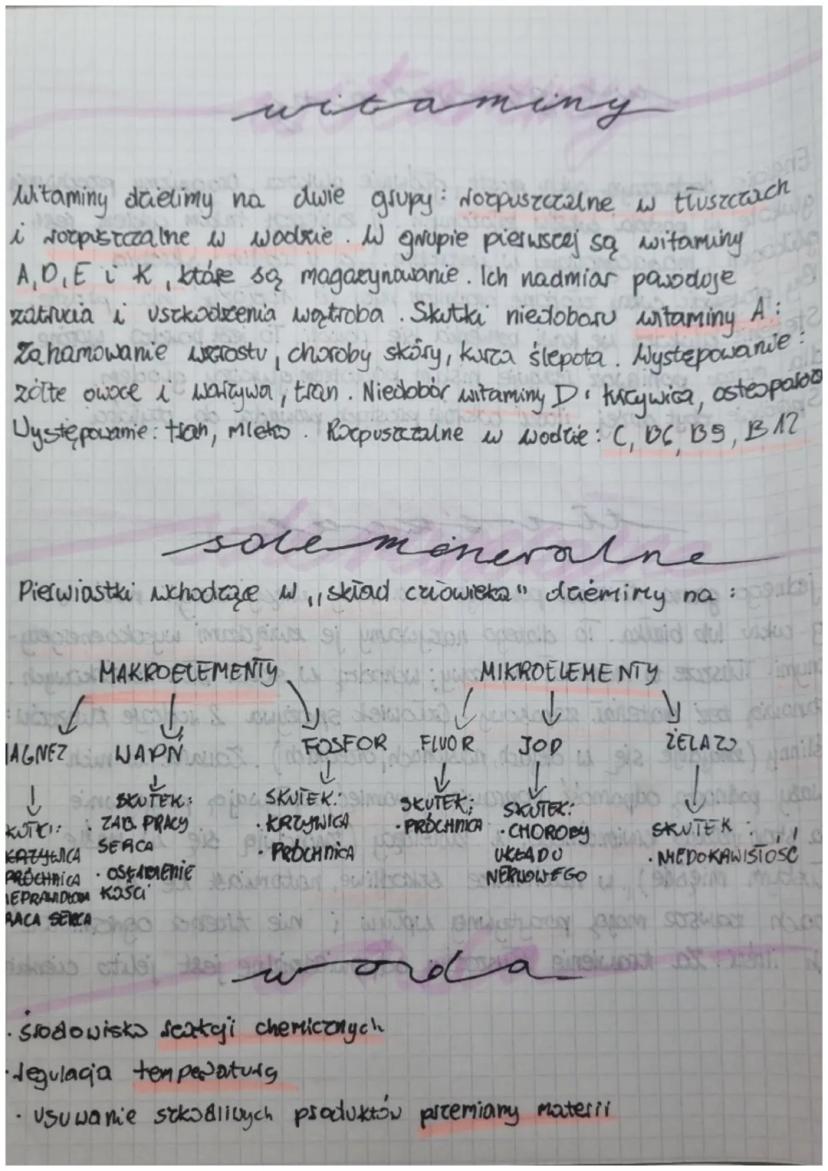 witaminy
Witaminy dzielimy na dwie grupy: rozpuszczalne w tłuszczach
i rozpuszczalne w wodzie. W grupie pierwszej są witaminy
A, D, E i K, które są magazynowanie. Ich nadmiar powoduje
zatrucia i uszkodzenia wątroba. Skutki niedoboru witaminy A:
Zahamowanie wzrostu, choroby skóry, kurza ślepota. Występowanie:
żółte owoce i warzywa, tran. Niedobór witaminy D: krzywica,
Występowanie: tran, mleko. Rozpuszczalne w wodzie: C, B6, B9, B12
sole mineralne
Pierwiastki wchodzące w „skład człowieka" na:
MAKROELEMENTY MIKROELEMENTY
AGNEZ WAPŃ FOSFOR FLUOR JOD ŻELAZO
SKUTEK: SKUTEK: SKUTEK: SKUTEK: SKUTEK:
KRZYWICA · ZAB. PRACY · KRZYWICA · PRÓCHNICA · CHOROBY · NIEDOKRWISTOŚĆ
PRÓCHNICA SERCA · PRÓCHNICA UKŁADU
· OSŁABIENIE NERWOWEGO
RACA SERCA KOŚCI
woda
· środowisko reakcji chemicznych
· regulacja temperatury
· usuwanie szkodliwych produktów przemiany materii